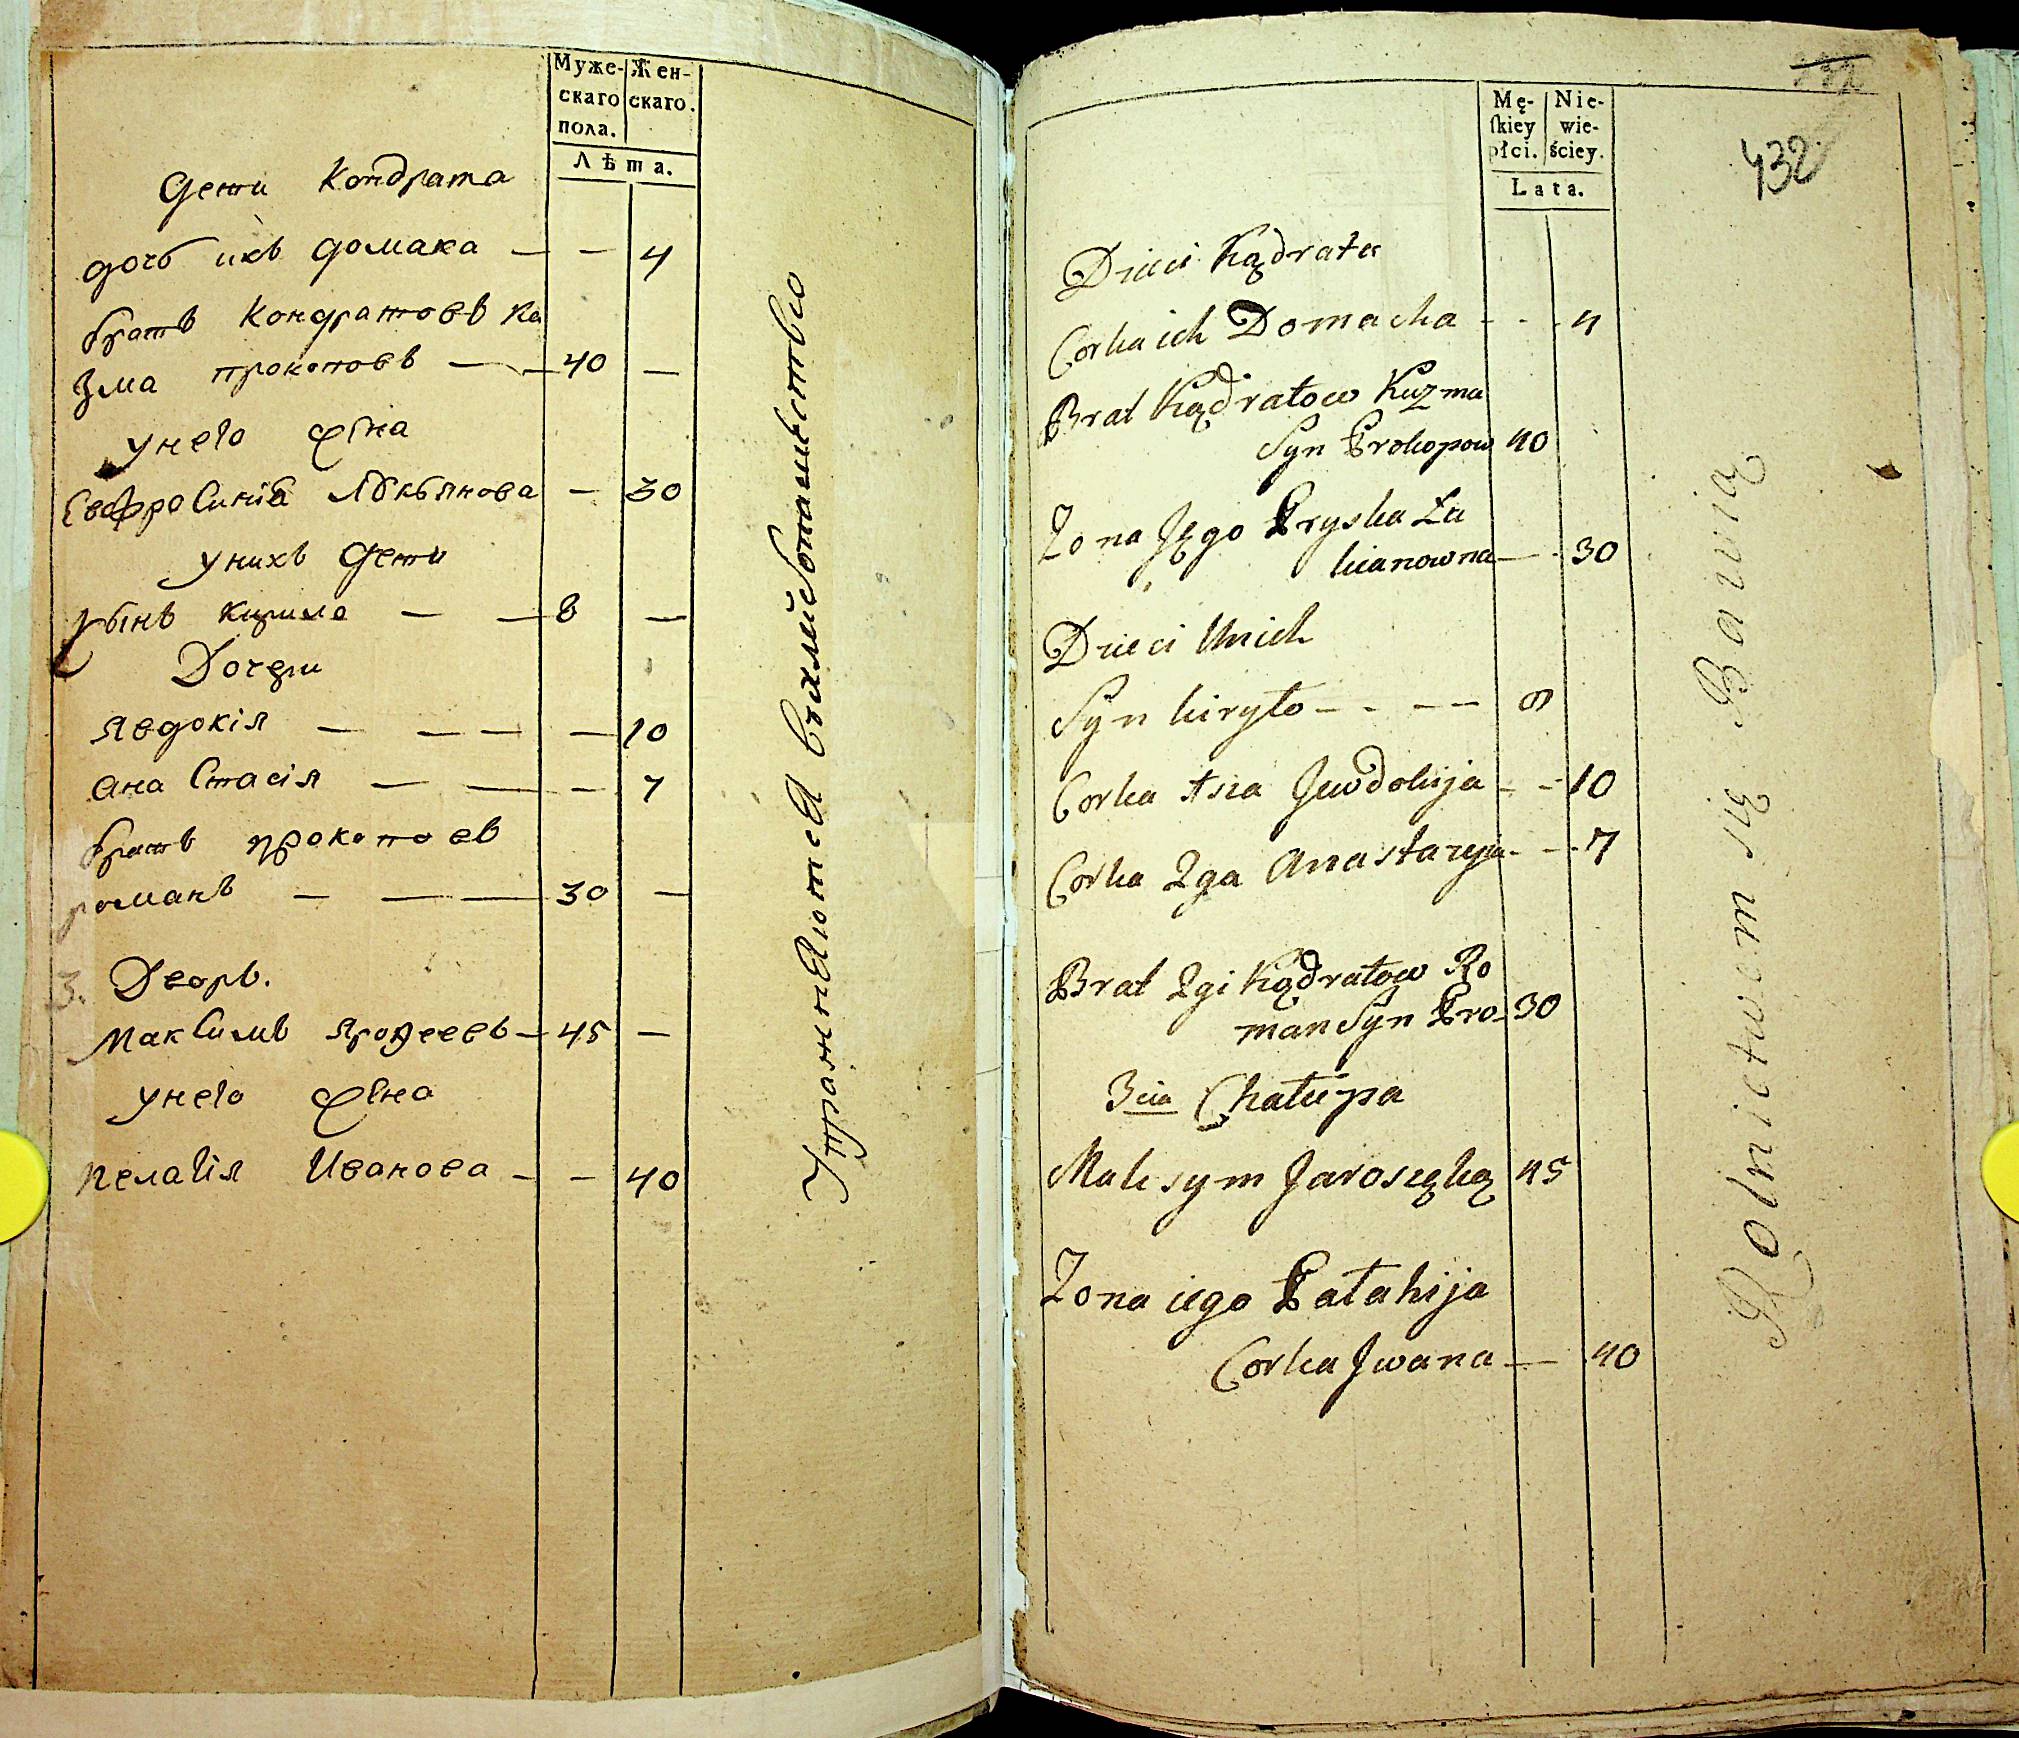 Муже- Жен-
скаго скаго.
пола.
Лѣта.
Дети Кондрата
дочь ихъ домаха — — 4
братъ Кондратовъ Ку
зма прокоповъ — — 40 —
унего жена
Евфросинiа Лукьянова — 30
унихъ Дети
сынъ кирило — — 8 —
Дочери
Явдокiя — — — — 10
ана Стасiя — — — 7
братъ прокопов
романъ — — — 30 —
3. Дворъ.
Максимъ Ярофеевъ — 45 —
унего жена
пелагiя Иванова — — 40
Упражняютея
Mę- Nie-
skiey wie-
płci. ściey.
Lata.
432
Dzieci Kądrata
Corka ich Domacha - - - 4
Brat Kądratow Kuzma
Syn Prokopow 40
Zona Jego Pryska Łu
kianowna — - 30
Dzieci Unich
Syn kiryło — - — — 8
Corka 1sza Jewdokija - - 10
Corka 2ga Anastazyia - - 7
Brat 2gi Kądratow Ro
man Syn Pro- 30
3cia Chałupa
Maksym Jaroszęką 45
Zona iego Pałahija
Corka Jwana — 40
Rolnictwem się Bawią